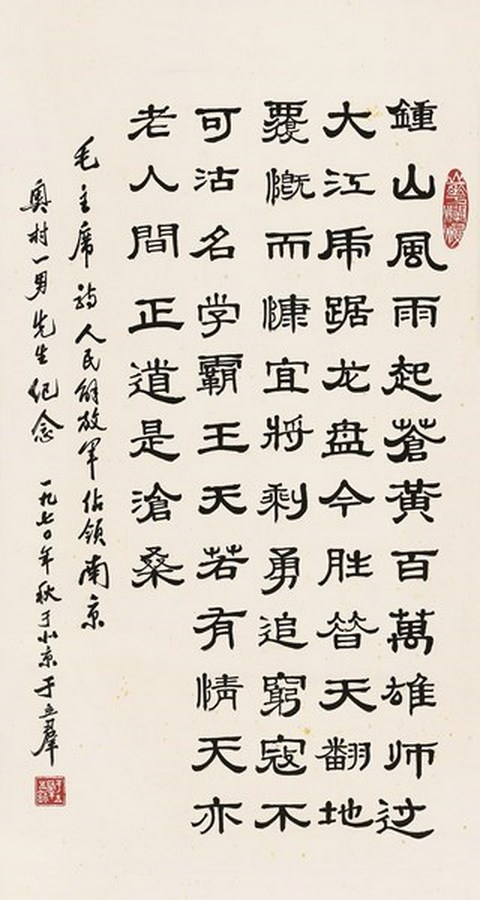 鍾山風雨起蒼黄百萬雄师过
大江虎踞龙盘今胜昔天翻地
覆慨而慷宜將剩勇追窮寇不
可沽名学霸王天若有情天亦
老人間正道是滄桑
毛主席诗人民解放军佔领南京
奥村一男先生纪念 一九七〇年秋于北京 于立群